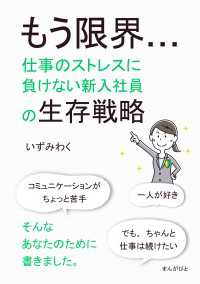 もう限界...
仕事のストレスに
負けない新入社員
の生存戦略
いずみわく
コミュニケーションが
ちょっと苦手
一人が好き
でも、ちゃんと
仕事は続けたい
そんな
あなたのために
書きました。
まんがびと